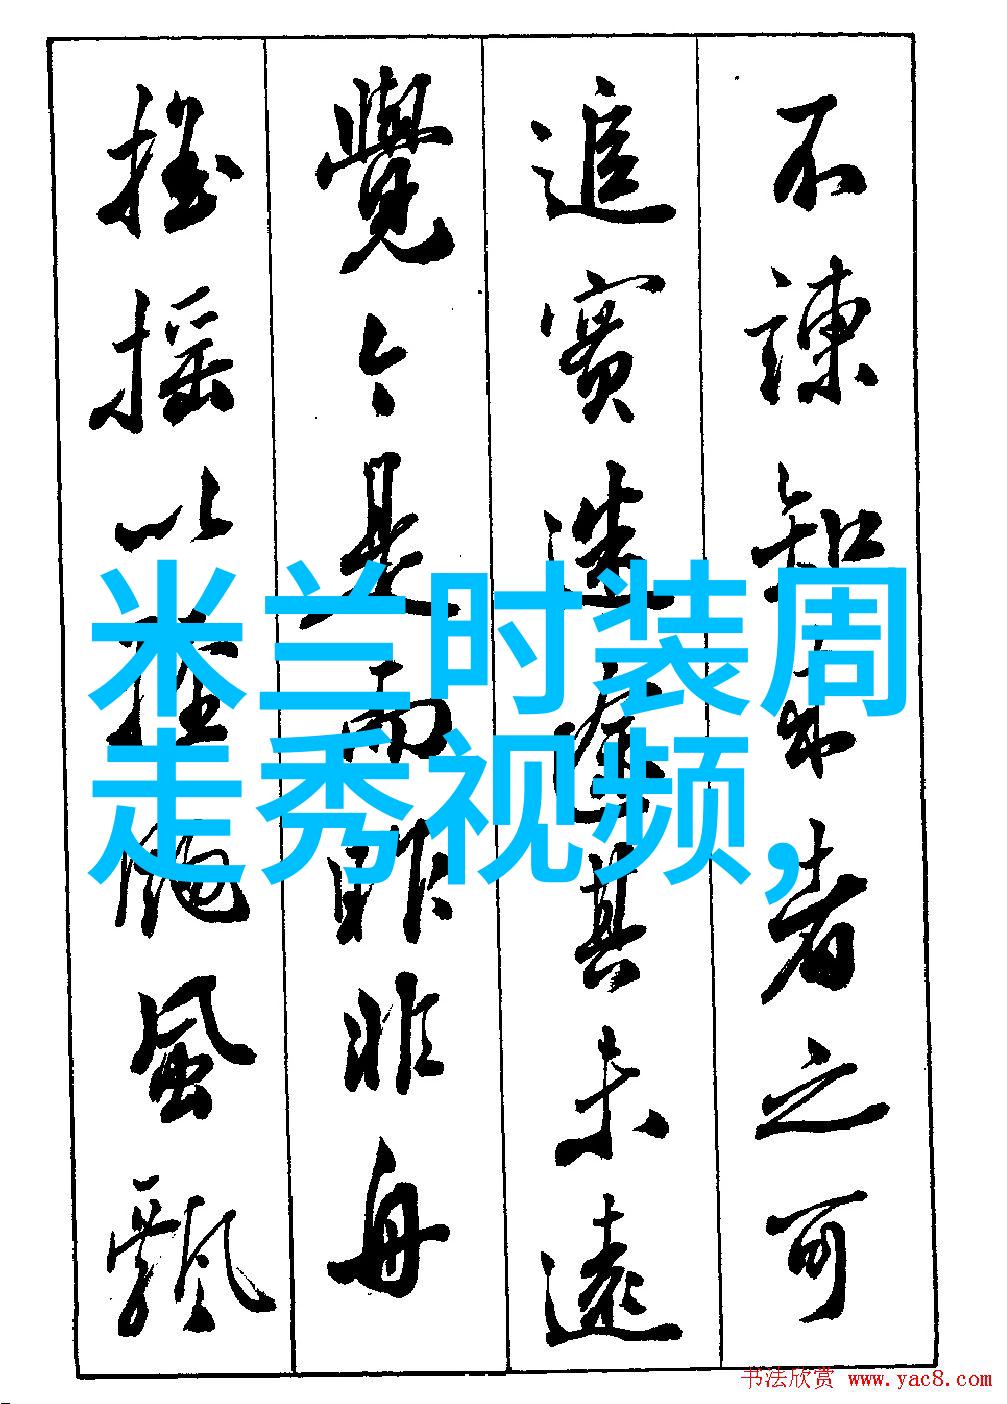 不諫知来者之可
追實迷途其未遠
覺今是而昨非舟
摇摇以輕颺風飄
米兰时装周
走秀视频,
书法欣赏 www.yac8.com